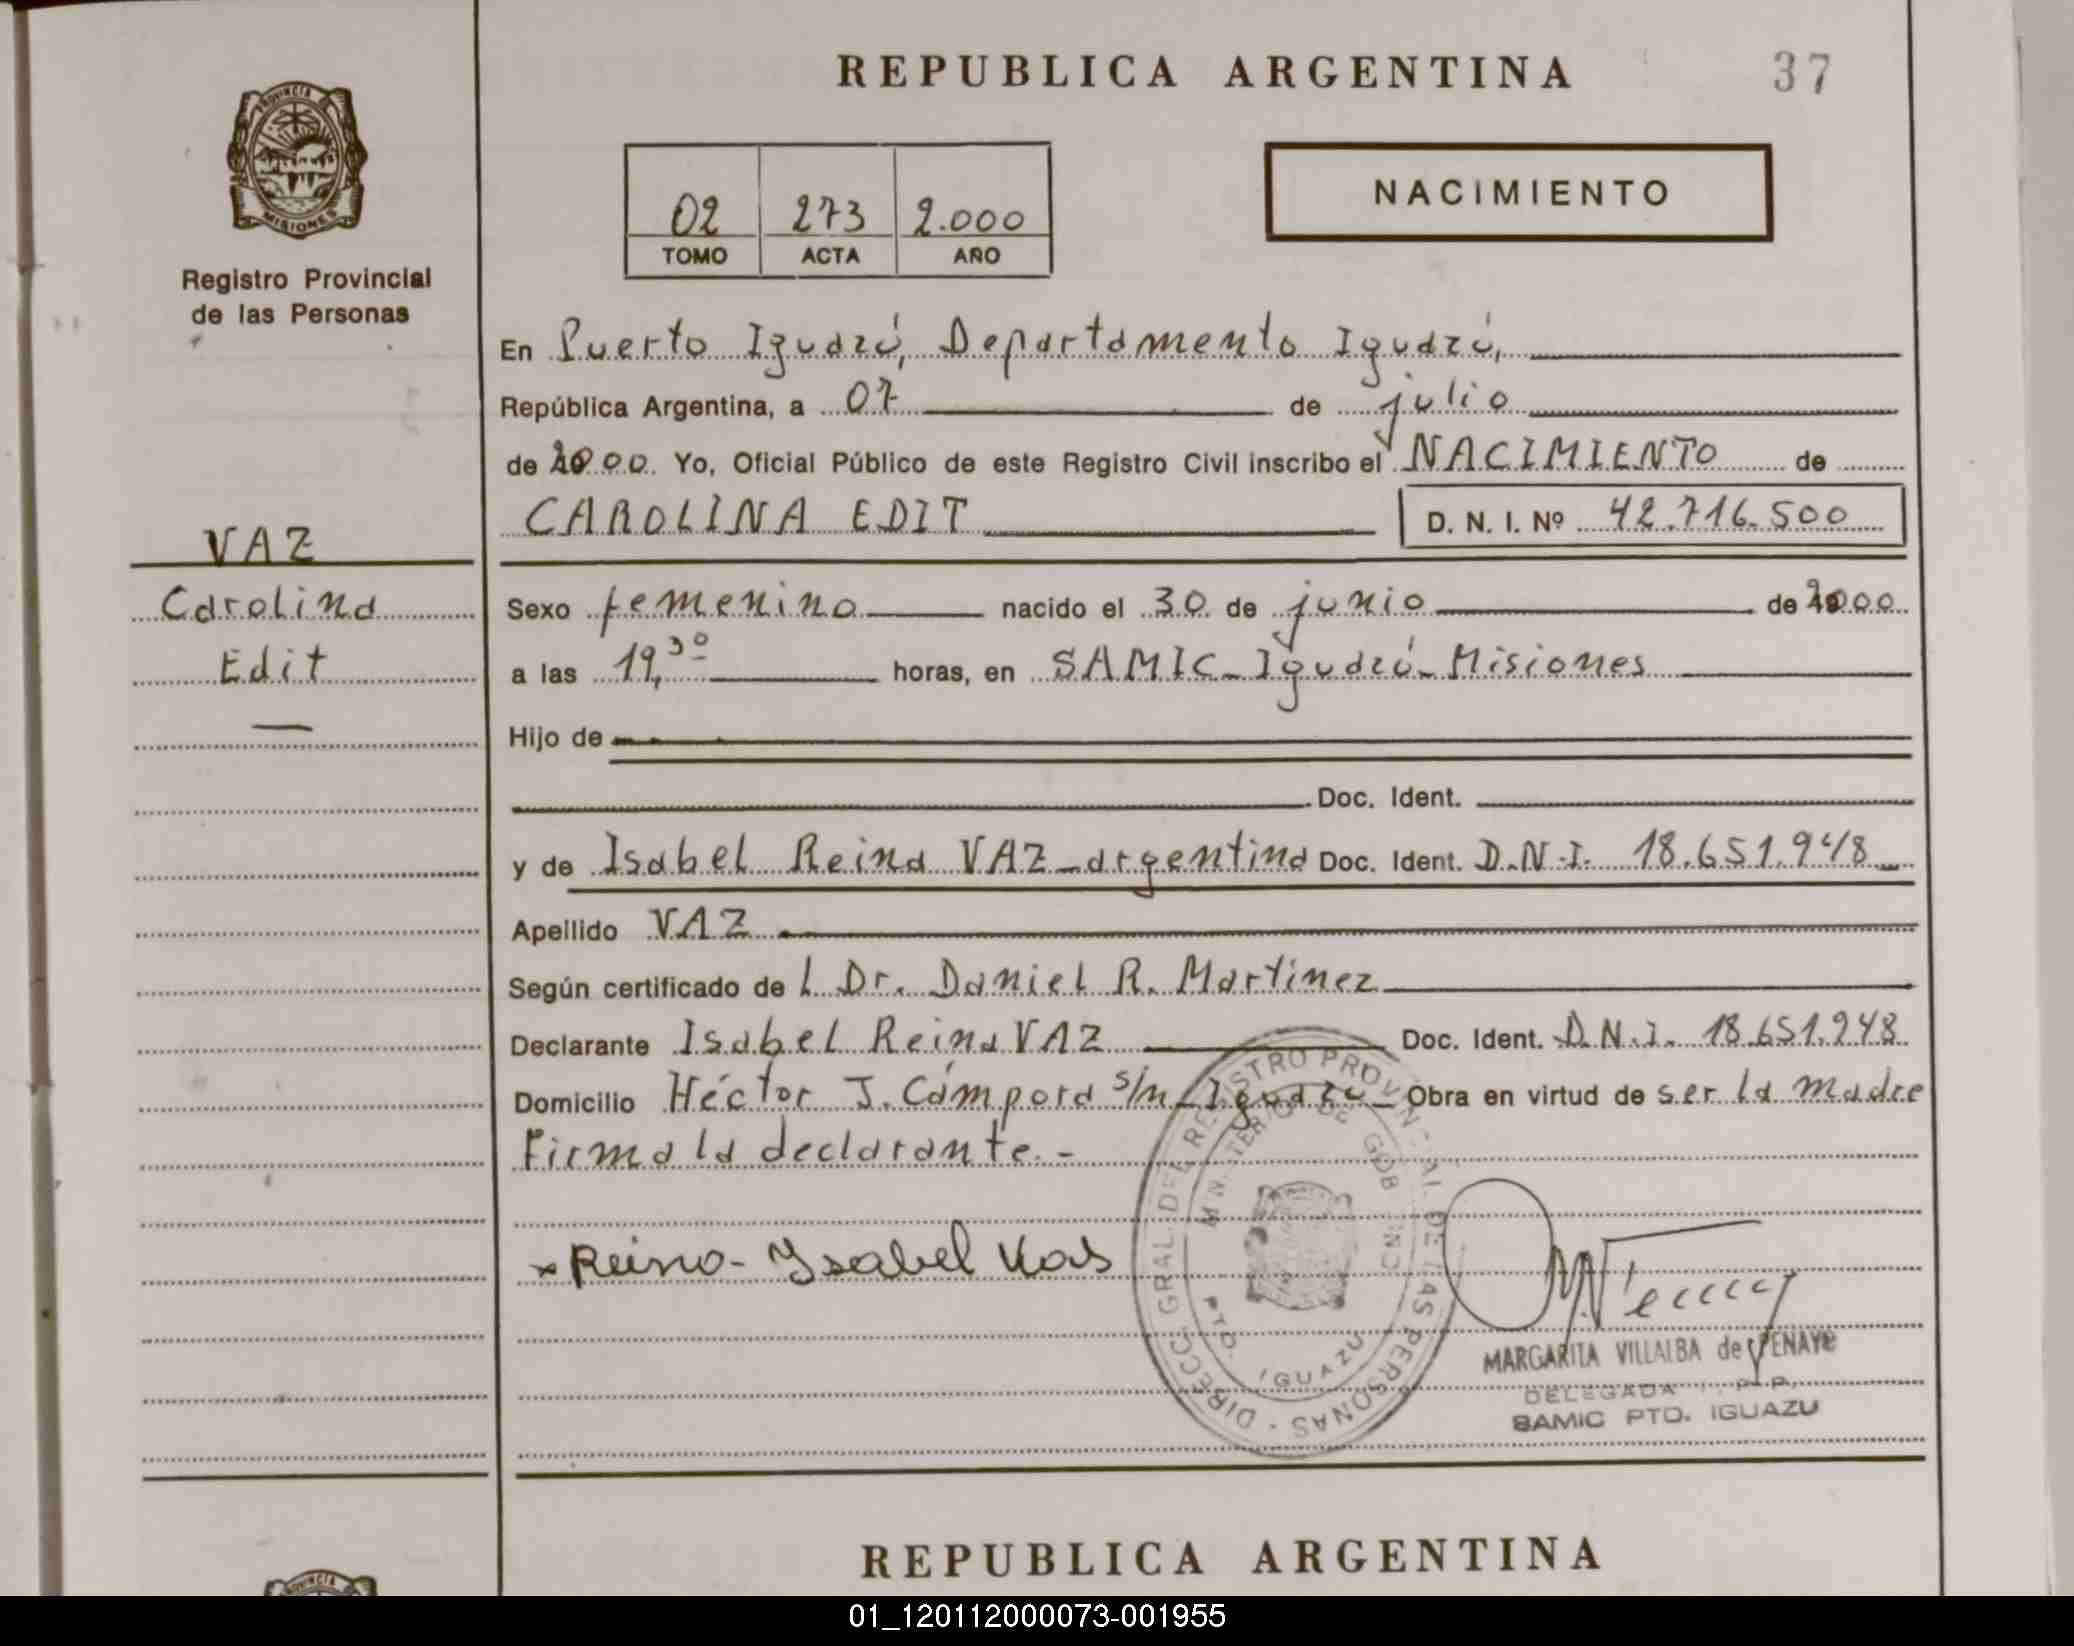 REPUBLICA ARGENTINA
37
PROVINCIA
MISIONES
Registro Provincial
de las Personas
02 273 2.000
TOMO ACTA AÑO
NACIMIENTO
En Puerto Iguazú, Departamento Iguazú,
República Argentina, a 07 de julio
de 2000. Yo, Oficial Público de este Registro Civil inscribo el NACIMIENTO de
CAROLINA EDIT D. N. I. Nº 42.716.500
VAZ
Carolina
Edit
Sexo femenino nacido el 30 de junio de 2000
a las 19,30 horas, en SAMIC - Iguazú - Misiones
Hijo de
Doc. Ident.
y de Isabel Reina VAZ - argentina Doc. Ident. D.N.I. 18.651.948
Apellido VAZ
Según certificado de l Dr. Daniel R. Martinez
Declarante Isabel Reina VAZ Doc. Ident. D.N.I. 18.651.948
Domicilio Héctor J. Cámpora s/n - Iguazú - Obra en virtud de ser la madre
Firma la declarante.-
x Reino - Ysabel Vas
DIRECC. GRAL. DEL REGISTRO PROVINCIAL DE LAS PERSONAS
PTO. IGUAZU
MARGARITA VILLALBA de PENAYO
DELEGADA R. P. P.
SAMIC PTO. IGUAZU
REPUBLICA ARGENTINA
PROVINCIA
01_120112000073-001955